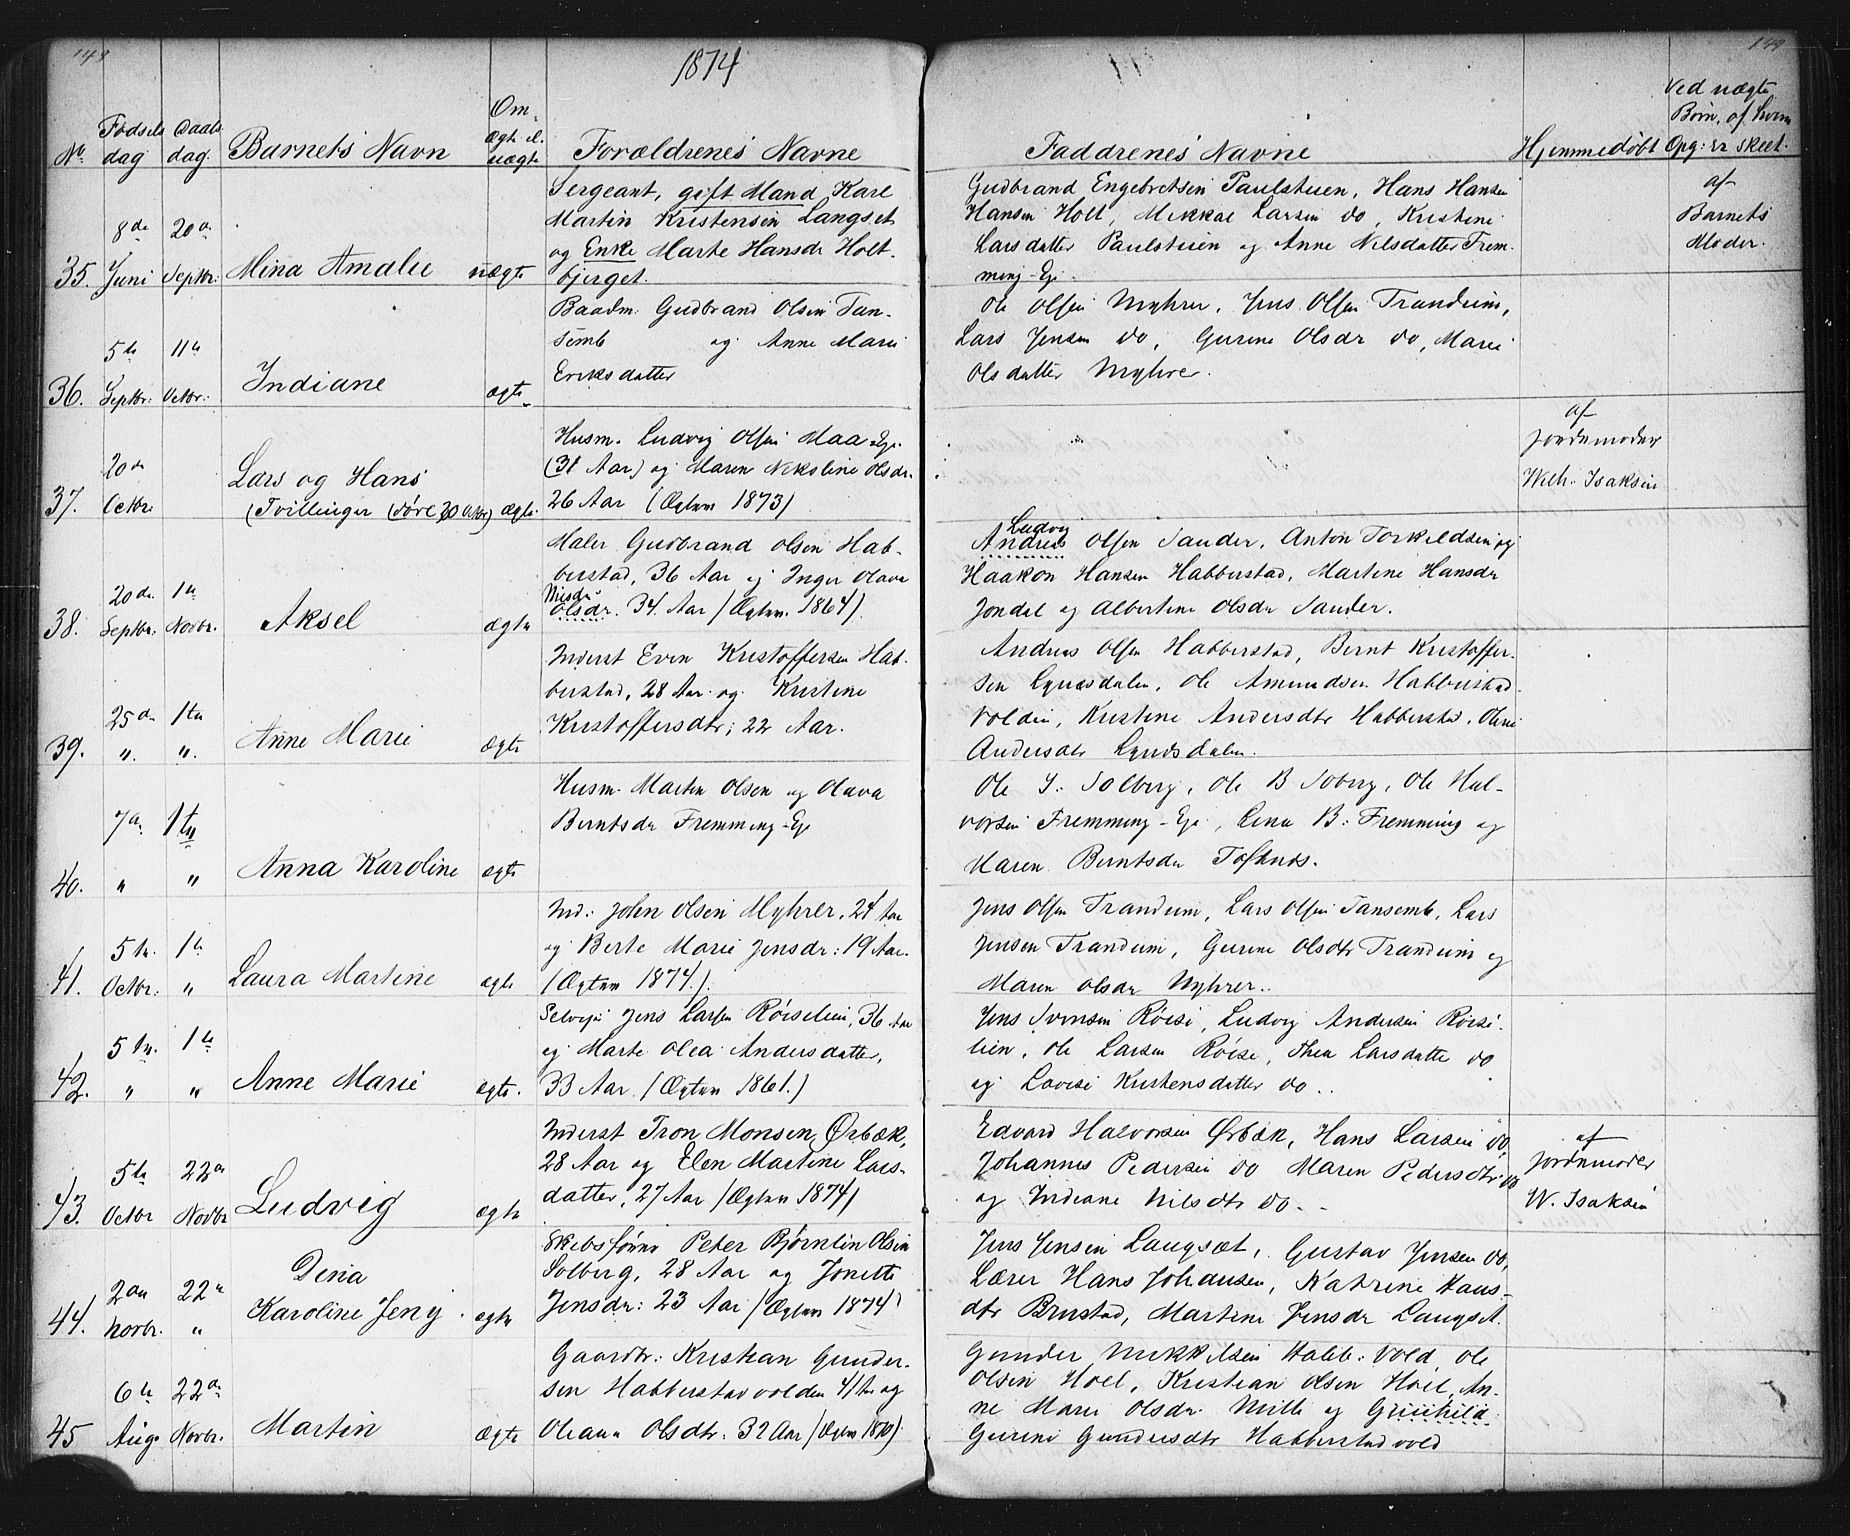 148
1874
149
No.
Fødsels dag
Daabs dag.
Barnets Navn
Om ægte el. uægte
Forældrenes Navne
Faddrenes Navne
Hjemmedøbt
Ved uægte Børn, af hvem Opg: er skeet.
35. 8de Juni 20de Septbr: Mina Amalie uægte
Sergeant, gift Mand Karl
Martin Kristensen Langset
og Enke Marte Hansdr Holt-
bjerget.
Gudbrand Engebretsen Paulstuen, Hans Hansen
Hansen Holt, Mikkal Larsen do, Kristine
Larsdatter Paulstuen og Anne Nilsdatter Frem-
ming-Eje.
af
Barnets
Moder.
36. 5te Septbr: 11te Octbr: Indiane ægte
Baadm. Gudbrand Olsen Tan-
semb og Anne Marie
Eriksdatter
Ole Olsen Myhrer, Jens Olsen Trandum,
Lars Jensen do, Gurine Olsdr do, Marie
Olsdatter Myhrer.
37. 20de Octbr. Lars og Hans
(Tvillinger (døde 20 Octbr) ægte.
Husm. Ludvig Olsen Maa-Eje.
(31 Aar) og Maren Nikoline Olsdr.
26 Aar (Ægtem 1873)
af
Jordemoder
Wilh. Isaksen
38. 20de Septbr. 1te Novbr. Aksel ægte
Maler Gudbrand Olsen Hab-
berstad, 36 Aar og Inger Olava
Nilsdr
Olsdr. 34. Aar (Ægtem. 1864).
Ludvig
Andreas Olsen Sander, Anton Torkildsen og
Haakon Hansen Habberstad, Martine Hansdr
Jondal og Albertine Olsdr Sander.
39. 25de " 1te " Anne Marie ægte
Inderst Even Kristoffersen Hab-
berstad, 28 Aar og Kristine
Kristoffersdtr; 22 Aar.
Andreas Olsen Habberstad, Bernt Kristoffer-
sen Lyndsdalen, Ole Amundsen Habberstad
volden, Kristine Andersdtr Habberstad, Oline
Andersdtr Lyndsdalen.
40. 7de " 1te " Anna Karoline ægte
Husm. Martin Olsen og Olava
Berntsdr Fremming-Eje
Ole S. Solberg, Ole B Soberg, Ole Hal-
vorsen Fremming-Eje, Lina B: Fremming og
Maren Berntsdr Tofsnes.
41. 5te Octbr: 1te " Laura Martine ægte
Ind: John Olsen Myhrer, 24 Aar
og Berte Marie Jensdr: 19 Aar.
(Ægtem 1874.)
Jens Olsen Trandum, Lars Olsen Tansemb, Lars
Jensen Trandum, Gurine Olsdtr Trandum og
Maren Olsdr Myhrer.
42. 5te " 1te " Anne Marie ægte.
Selvejer Jens Larsen Røiselien, 36 Aar
og Marte Olea Andersdatter,
33 Aar. (Ægtem 1861.)
Jens Svensen Røise, Ludvig Andersen Røise-
lien, Ole Larsen Røise, Thea Larsdatter do
og Lovise Kristensdatter do.
43. 5te Octbr 22de Novbr Ludvig ægte
Inderst Tron Monsen Ørbæk,
28 Aar og Elen Martine Lars-
datter, 27 Aar (Ægtem 1874)
Edvard Halvorsen Ørbæk, Hans Larsen do,
Johannes Pedersen do Maren Pedersdtr do
og Indiane Nilsdtr do.
af
Jordemoder
W. Isaksen
44. 2den Novbr. 22de " Dina
Karoline Jeny. ægte
Skibsfører Peter Bjørnlin Olsen
Solberg, 28 Aar og Jonette
Jensdr: 23 Aar (Ægtem 1874)
Jens Jensen Langsæt, Gustav Jensen do,
Lærer Hans Johansen, Katrine Hans-
dtr Brustad, Martine Jensdr Langset.
45 6te Aug. 22de Novbr. Martin ægte
Gaardbr: Kristian Gunder-
sen Habberstadvolden 41 Aar og
Oleana Olsdtr. 32 Aar (Ægtem 1870).
Gunder Mikkelsen Habb: vold, Ole
Olsen Hoel, Kristian Olsen Hoel, An-
ne Marie Olsdr Melle og Gunhild
Gurine Gundersdtr Habberstadvold